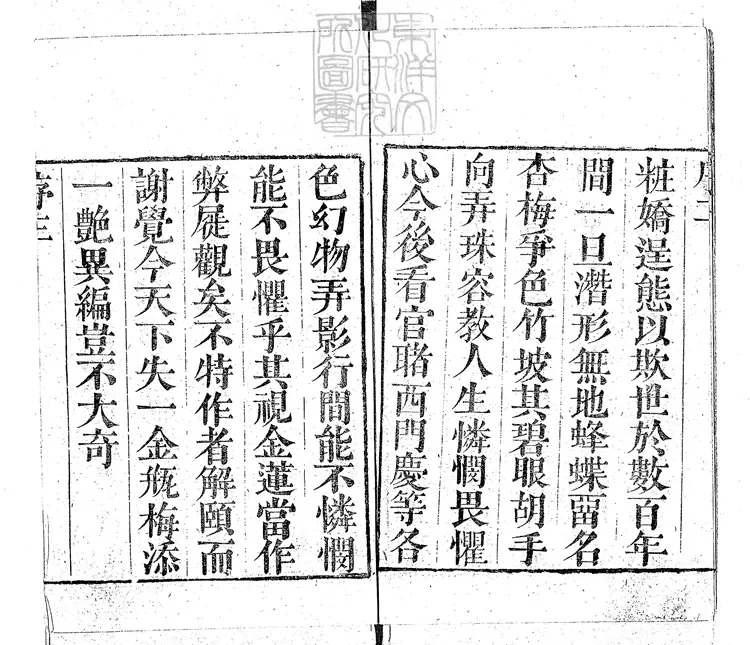 序二
粧嬌逞態以欺世於數百年
間一旦潛形無地蜂蝶畱名
杏梅爭色竹坡其碧眼胡手
向弄珠容教人生憐憫畏懼
心今後看官睹西門慶等各
色幻物弄影行間能不憐憫
能不畏懼乎其視金蓮當作
弊屣觀矣不特作者解頤而
謝覺今天下失一金瓶梅添
一艷異編豈不大奇
序三
東洋文
化研究
所圖書